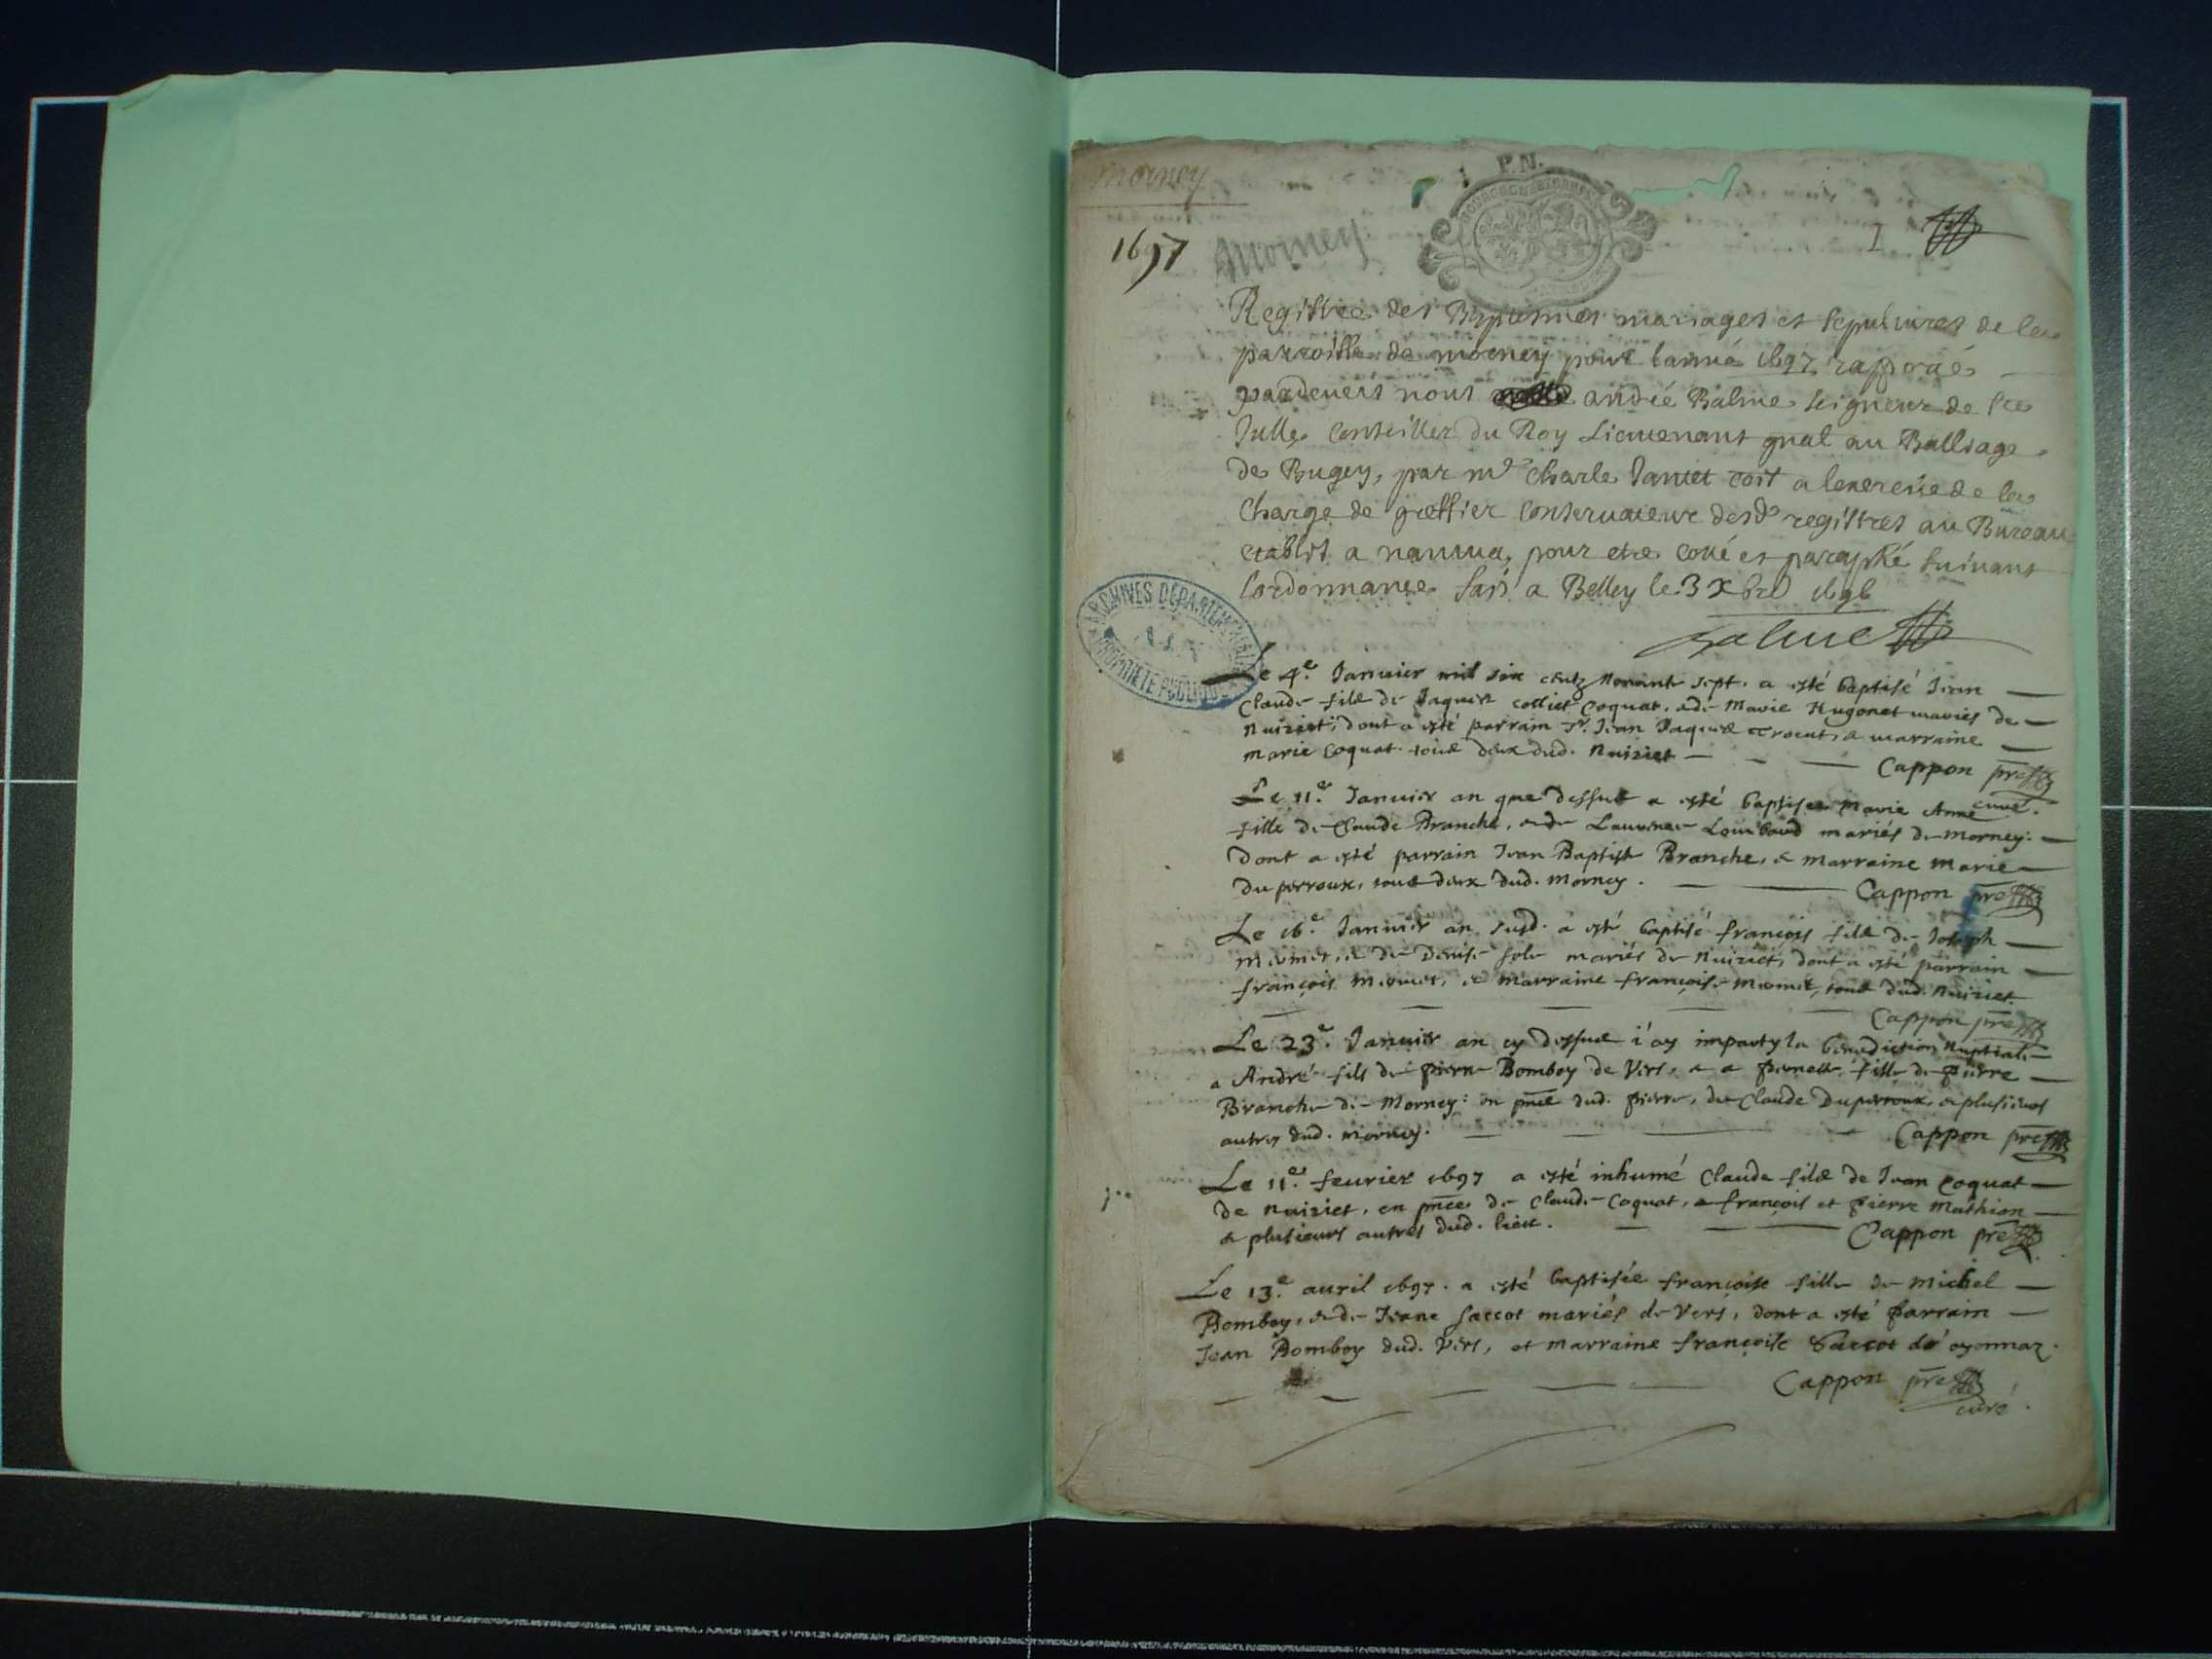 Morney
P.N.
1697 Morney
I
Registre des Baptesmes mariages et sepultures de la
parroisse de morney pour lannée 1697 rapporté
pardevers nous andré Balme seigneur de Ste
Julle Conseiller du Roy Lieutenant gnal au Balliage
de Bugey, par mr Charle Jantet coit a lexercise de la
Charge de greffier conservateur desd registres au Bureau
etablit a nantua, pour etre cotté et paraphé suivant
lordonnance fait a Belley le 3 xbre 1696
Balme
ARCHIVES DEPARTEMENTALES
PROPRIETE PUBLIQUE
Le 4e. Janvier mil six centz Nonante sept. a esté baptisé Jean
Claude filz de Jaques colliet Coquat, & de Marie Hugonet mariés de
Nuiriet, dont a esté parrain Sr. Jean Jaques & marraine
Marie Coquat tous deux dud. Nuiriet Cappon pre
curé.
Le 11e. Janvier an que dessus a esté baptisee Marie Anne
fille de Claude Branche, & de Laurence mariés de Morney:
Dont a esté parrain Jean Baptiste Branche, & marraine Marie
Duperroux, tous deux dud. Morney. Cappon pre
Le 16e. Janvier an susd. a esté baptisé François filz de Joseph
Mermet, & de Denise mariés de Nuiriet, dont a esté parrain
François Mermet, & Marraine Françoise Mermet, tous dud. Nuiriet.
Cappon pre
Le 23e. Janvier an cy dessus i'ay imparty la benediction Nuptiale
a André fils de Pierre Bomboy de Vers, & a Pernette fille de Pierre
Branche de Morney: en pnce dud. Pierre, de Claude Duperroux, & plusieurs
autres dud. Morney. Cappon pre
Le 11e. fevrier 1697 a esté inhumé Claude filz de Jean Coquat
de Nuiriet, en pnce de Claude Coquat, & François et Pierre Mathion
& plusieurs autres dud. lieu. Cappon pre
Le 13e. avril 1697. a esté baptisée Françoise fille de Michel
Bomboy, & de Jeane Saccot mariés de Vers, dont a esté Parrain
Jean Bomboy dud. Vers, et Marraine Françoise Saccot d'oyonnaz.
Cappon pre
curé.